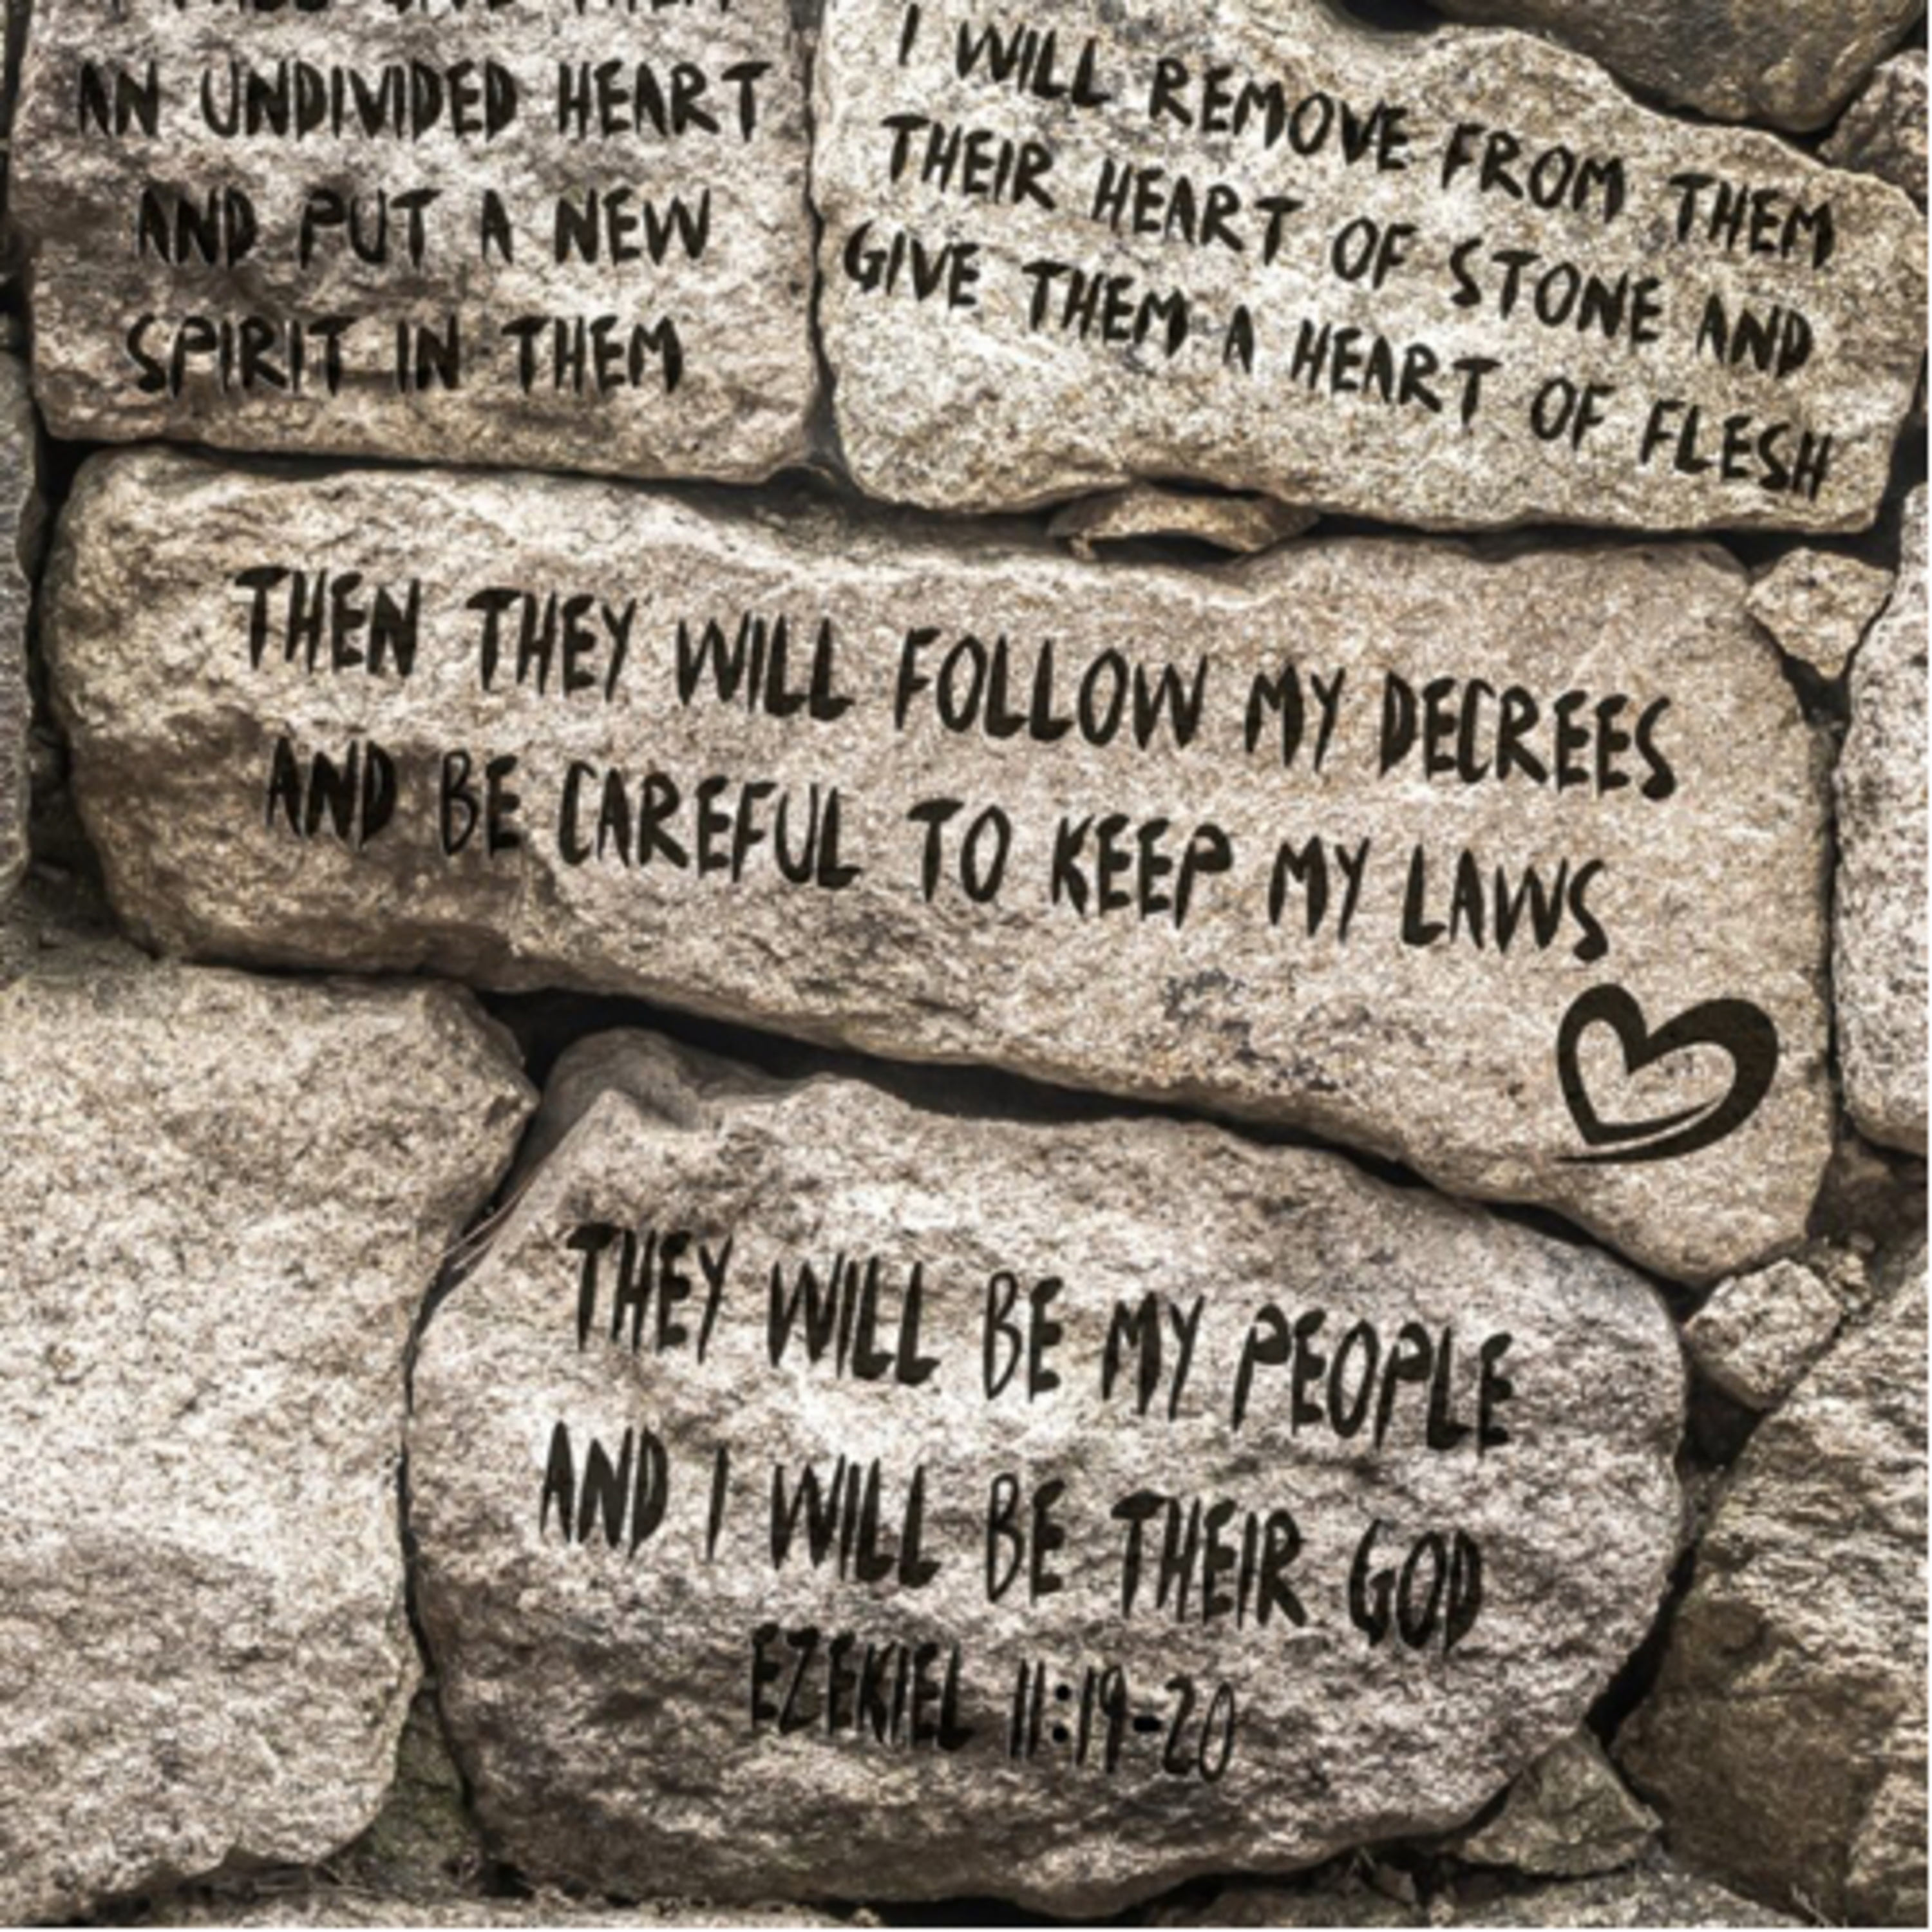 GIVE THEM
AN UNDIVIDED HEART
AND PUT A NEW
SPIRIT IN THEM
I WILL REMOVE FROM THEM
THEIR HEART OF STONE AND
GIVE THEM A HEART OF FLESH
THEN THEY WILL FOLLOW MY DECREES
AND BE CAREFUL TO KEEP MY LAWS
THEY WILL BE MY PEOPLE
AND I WILL BE THEIR GOD
EZEKIEL 11:19-20